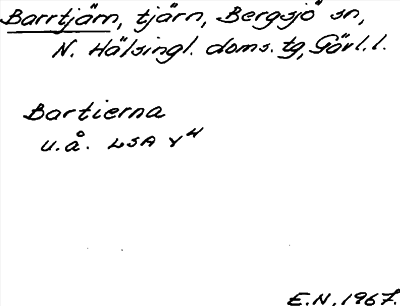 Barrtjärn, tjärn, Bergsjö sn,
N. Hälsingl. doms. tg, Gävl. l.
Bartierna
u.å. LSA Y⁴
E.N. 1967.